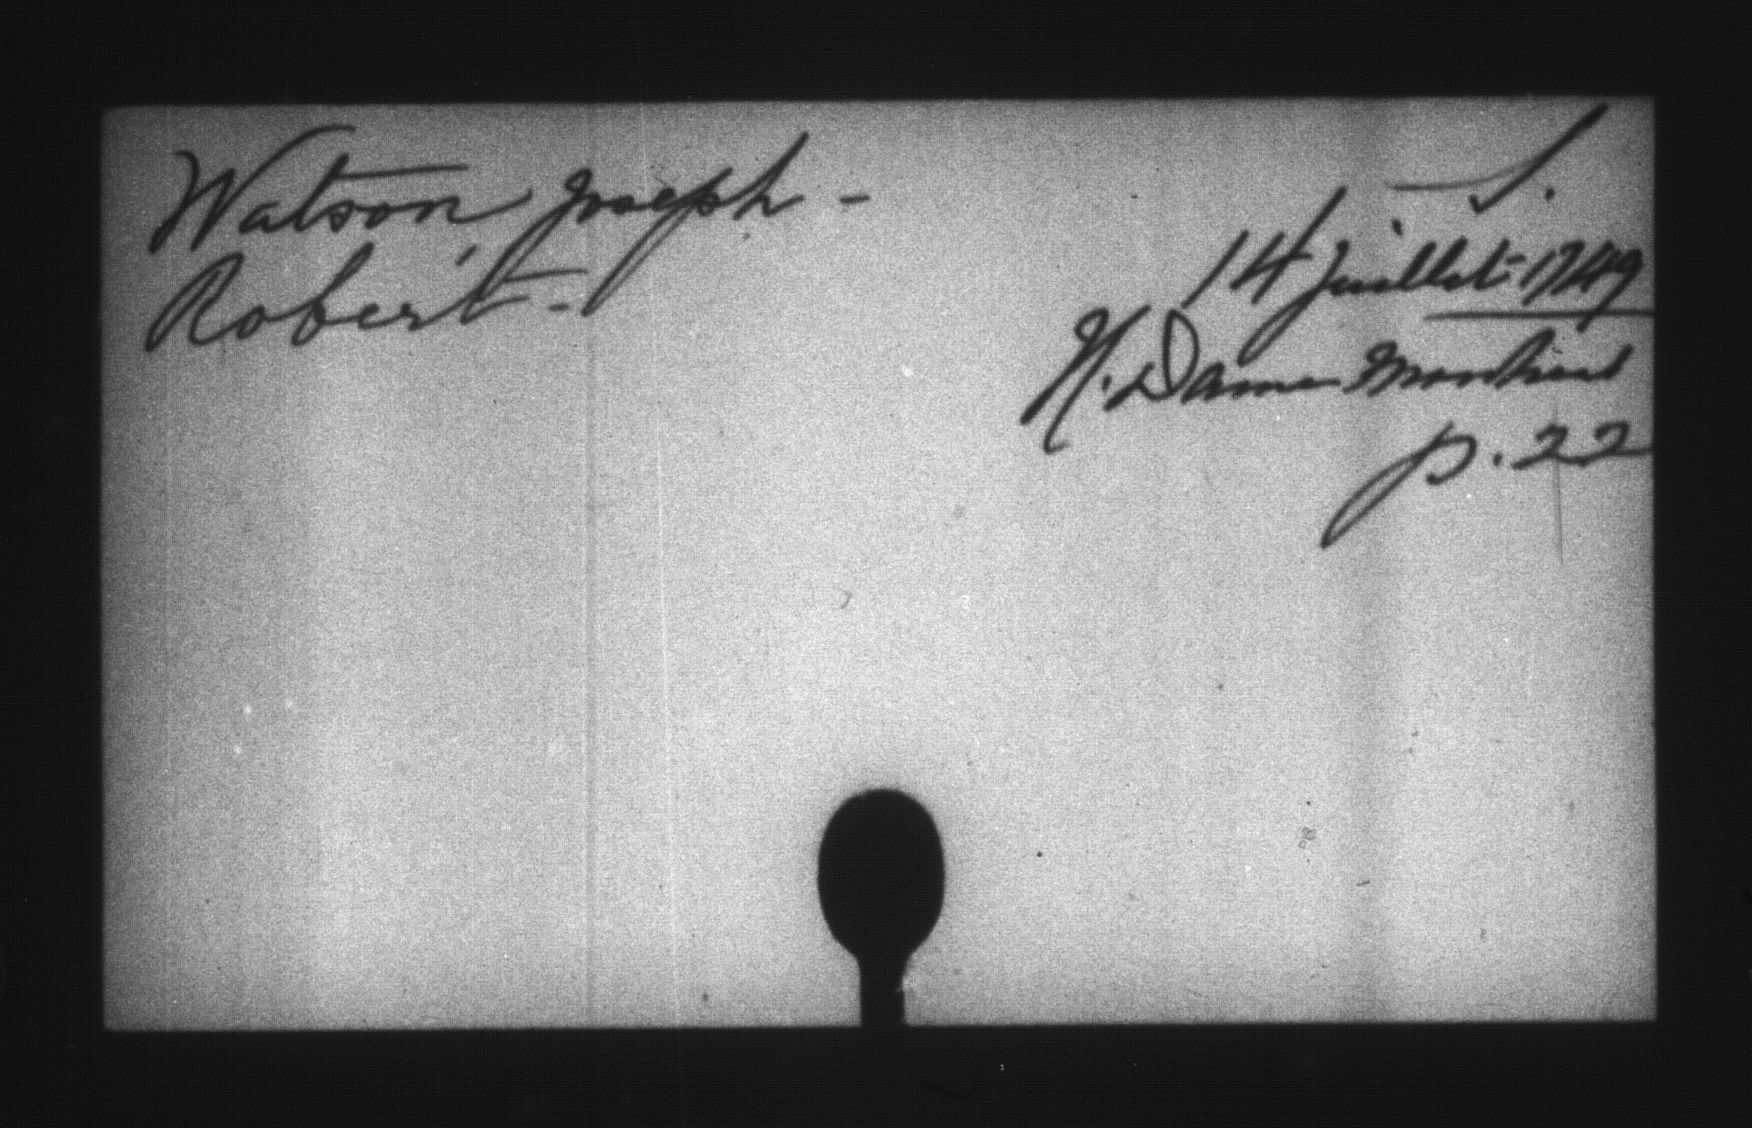 Watson Joseph -
Robert -
S.
14 Juillet 1749
N. Dame Montreal
p. 22